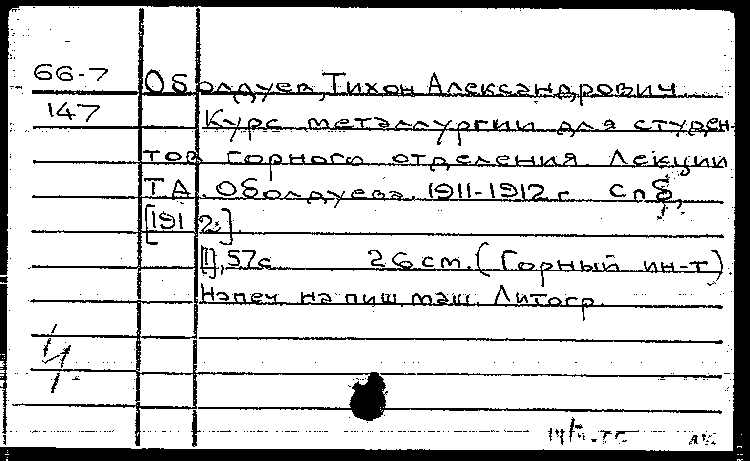 66-7
147
Оболдуев, Тихон Александрович
Курс металлургии для студен-
тов горного отделения Лекции
Т.А. Оболдуева. 1911-1912 г. Спб,
[1912].
[1], 57 с. 26 см. (Горный ин-т).
Напеч. на пиш. маш. Литогр.